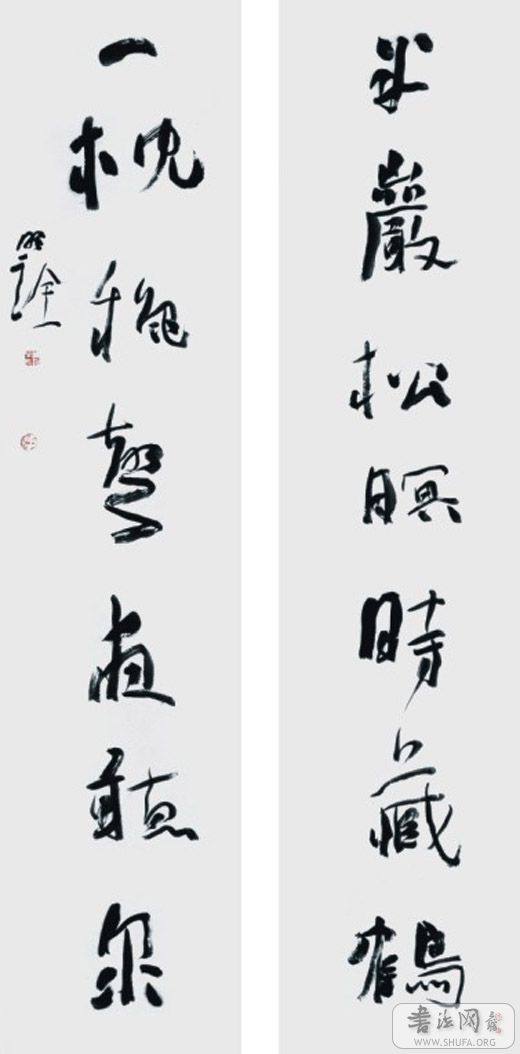 半巖松暝時藏鶴
一枕穐聲夜聽泉
書法网
WWW.SHUFA.ORG